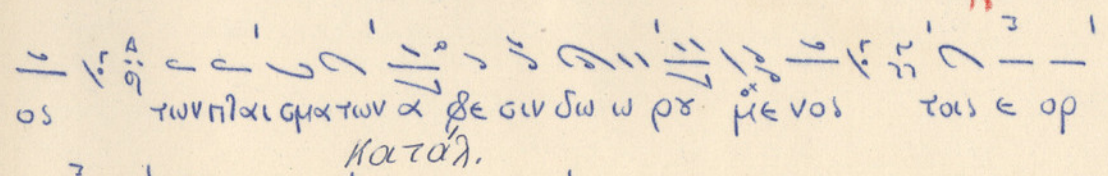 ος των πλαισματων α φε σιν δω ω ρȣ με νος ταις ε ορ
Κατάλ.